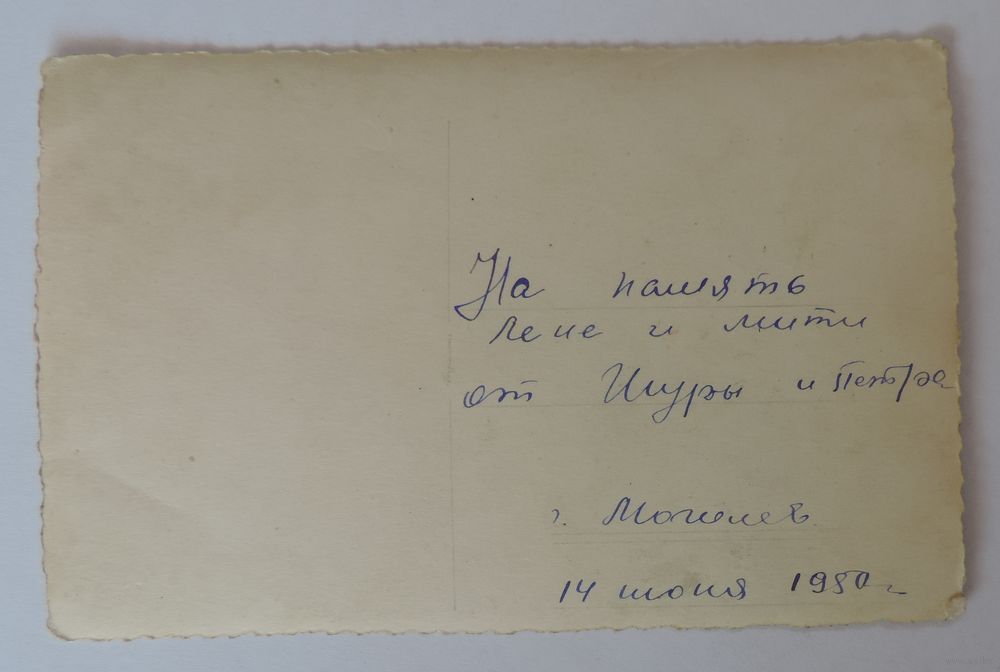 На память
Лене и Мити
от Шуры и Петра
г. Могилев
14 июня 1950 г